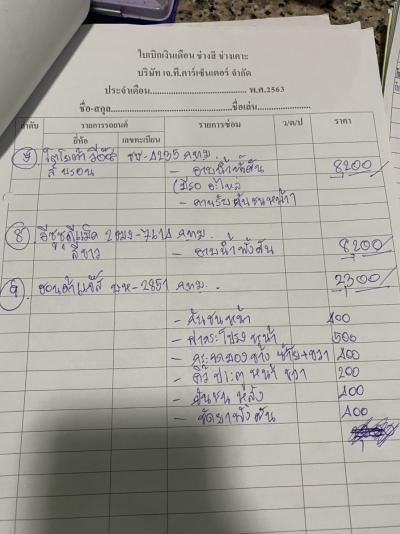 ใบเบิกเงินเดือน ช่างสี ช่างเคาะ
บริษัท เจ.ที.คาร์เซ็นเตอร์ จำกัด
ประจำเดือน.......................................... พ.ศ.2563
ชื่อ-สกุล..........................................ชื่อเล่น..........................
ลำดับ รายการรถยนต์ รายการซ่อม ว/ด/ป ราคา
ยี่ห้อ เลขทะเบียน
โตโยต้า วีออส ขข-4235 กทม.
สี บรอน - อาบน้ำทั้งคัน 8200
(มีรอ อะไหล่
- คานรับกันชนหน้า)
8 อีซูซุดีแม็ค 2ฒร-7214 กทม.
สีขาว - อาบน้ำทั้งคัน 8200
9. ฮอนด้าแจ๊ส -2851 กทม. 2300
- กันชนหน้า 400
- ฝากระโปรงหน้า 500
- ข้าง ซ้าย+ขวา 400
- คิ้ว ปตหน้า ขวา 200
- กันชนหลัง 400
- ขัดยาทั้งคัน 400